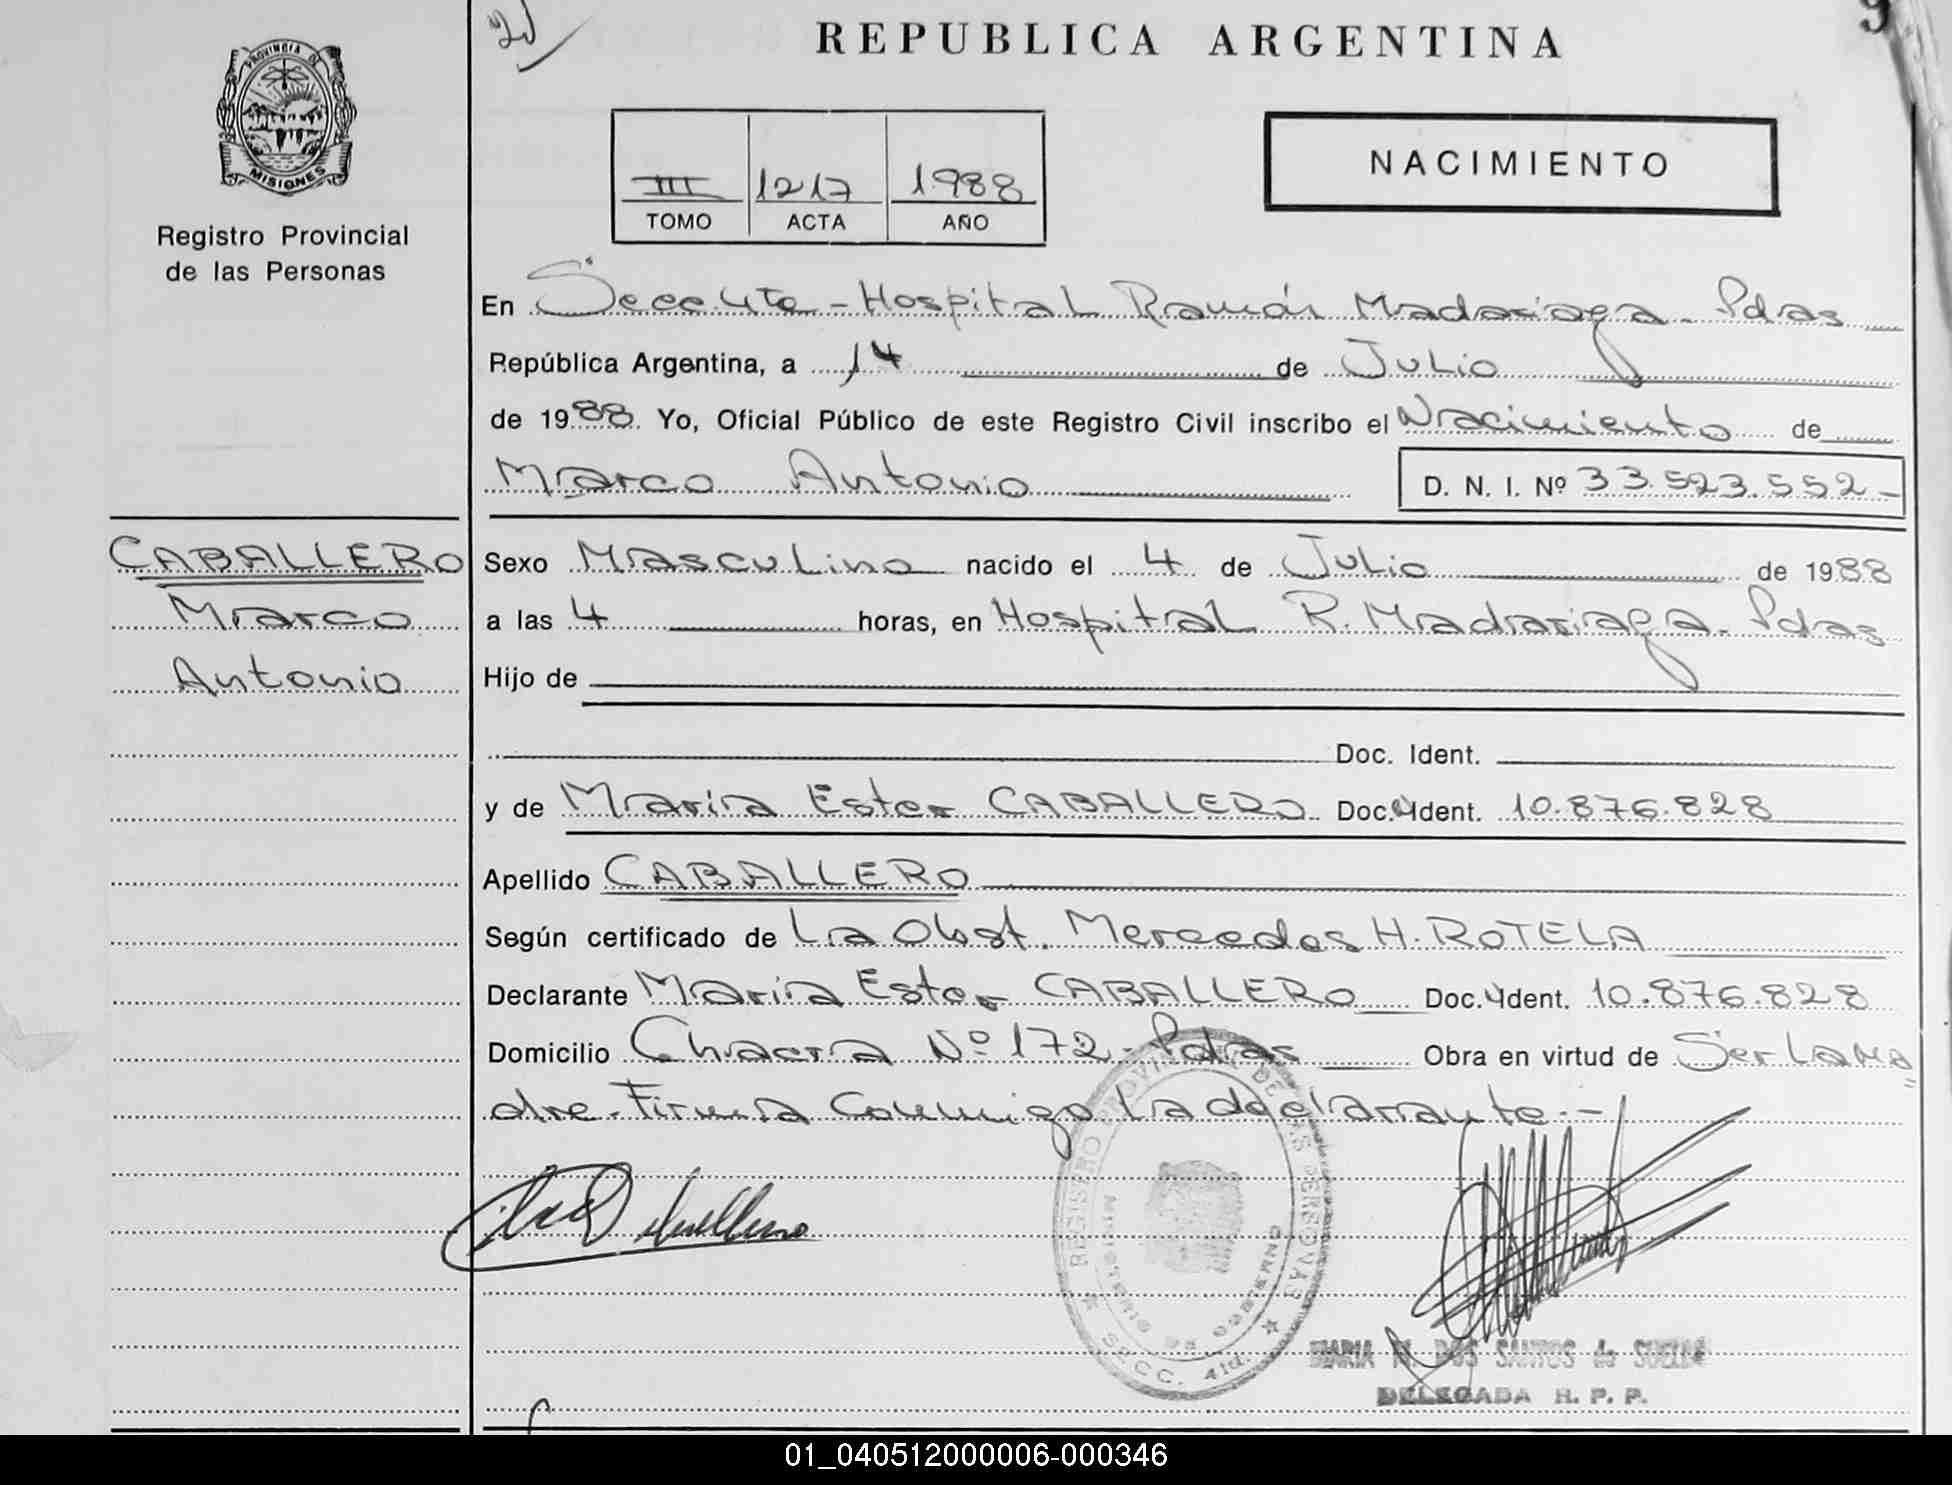 REPUBLICA ARGENTINA
9
PROVINCIA DE
MISIONES
Registro Provincial
de las Personas
III 1217 1988
TOMO ACTA AÑO
NACIMIENTO
En Secc. 4ta - Hospital Ramón Madariaga - Pdas
República Argentina, a 14 de Julio
de 1988 Yo, Oficial Público de este Registro Civil inscribo el Nacimiento de
Marco Antonio D. N. I. Nº 33.523.552-
CABALLERO
Marco
Antonio
Sexo Masculino nacido el 4 de Julio de 1988
a las 4 horas, en Hospital R. Madariaga - Pdas
Hijo de
Doc. Ident.
y de María Ester CABALLERO Doc. Ident. 10.876.828
Apellido CABALLERO
Según certificado de La Obst. Mercedes H. ROTELA
Declarante María Ester CABALLERO Doc. Ident. 10.876.828
Domicilio Chacra Nº 172 - Pdas Obra en virtud de Ser La Ma
dre. Firma Conmigo La declarante.-
REGISTRO PROVINCIAL DE LAS PERSONAS
MINISTERIO DE GOBIERNO
SECC. 4ta.
MARIA M. DOS SANTOS de
DELEGADA R. P. P.
01_040512000006-000346